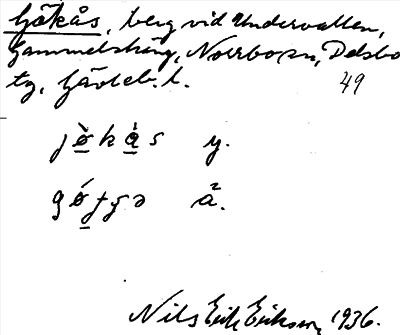 Gökås, berg vid Undervallen,
Gammelsträng, Norrbo sn, Delsbo
tg, Gävleb. l. 49
jø̀kås y.
å².
Nils Erik Eriksson, 1936.